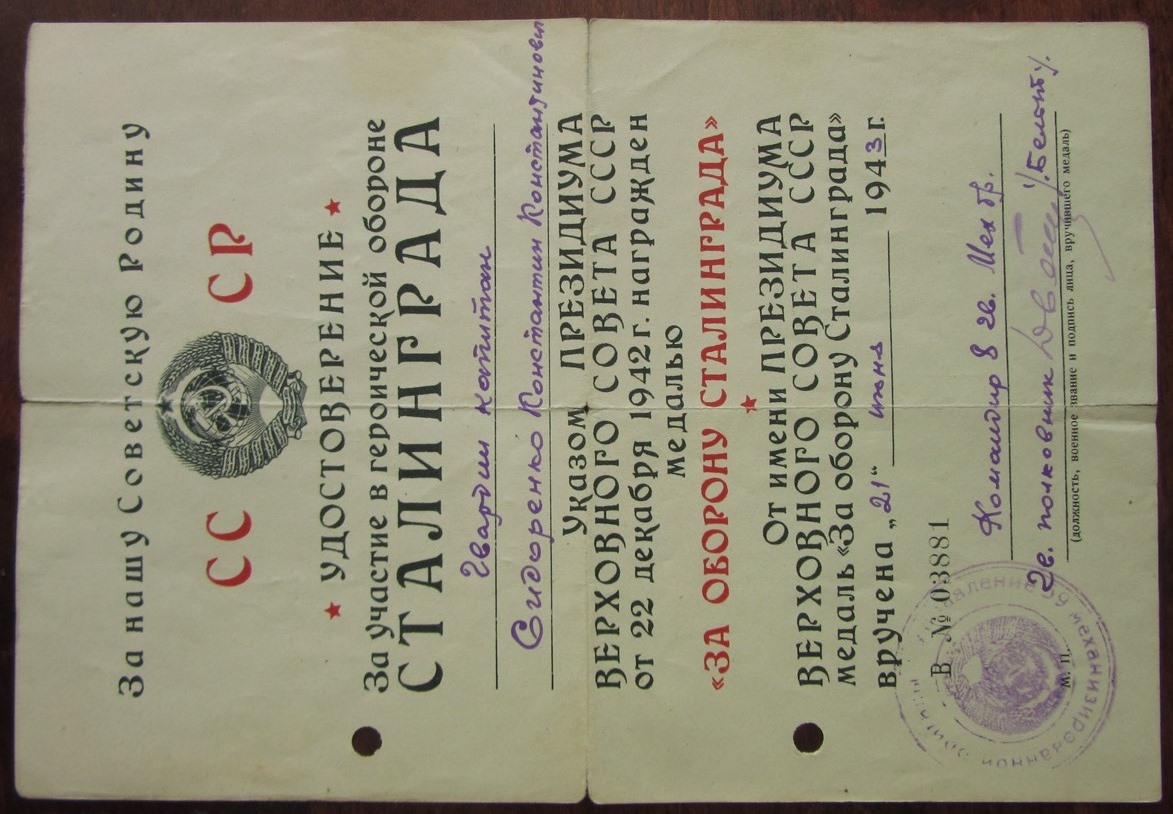 За нашу Советскую Родину
СС СР
УДОСТОВЕРЕНИЕ
За участие в героической обороне
СТАЛИНГРАДА
Гвардии капитан
Сидоренко Константин Константинович
Указом ПРЕЗИДИУМА
ВЕРХОВНОГО СОВЕТА СССР
от 22 декабря 1942 г. награжден
медалью
«ЗА ОБОРОНУ СТАЛИНГРАДА»
От имени ПРЕЗИДИУМА
ВЕРХОВНОГО СОВЕТА СССР
медаль «За оборону Сталинграда»
вручена „21“ июня 1943 г.
В №03881
Командир 8 гв. Мех бр.
Гв. полковник
(должность, военное звание и подпись лица, вручившего медаль)
М. П.
Управление механизированной бригады